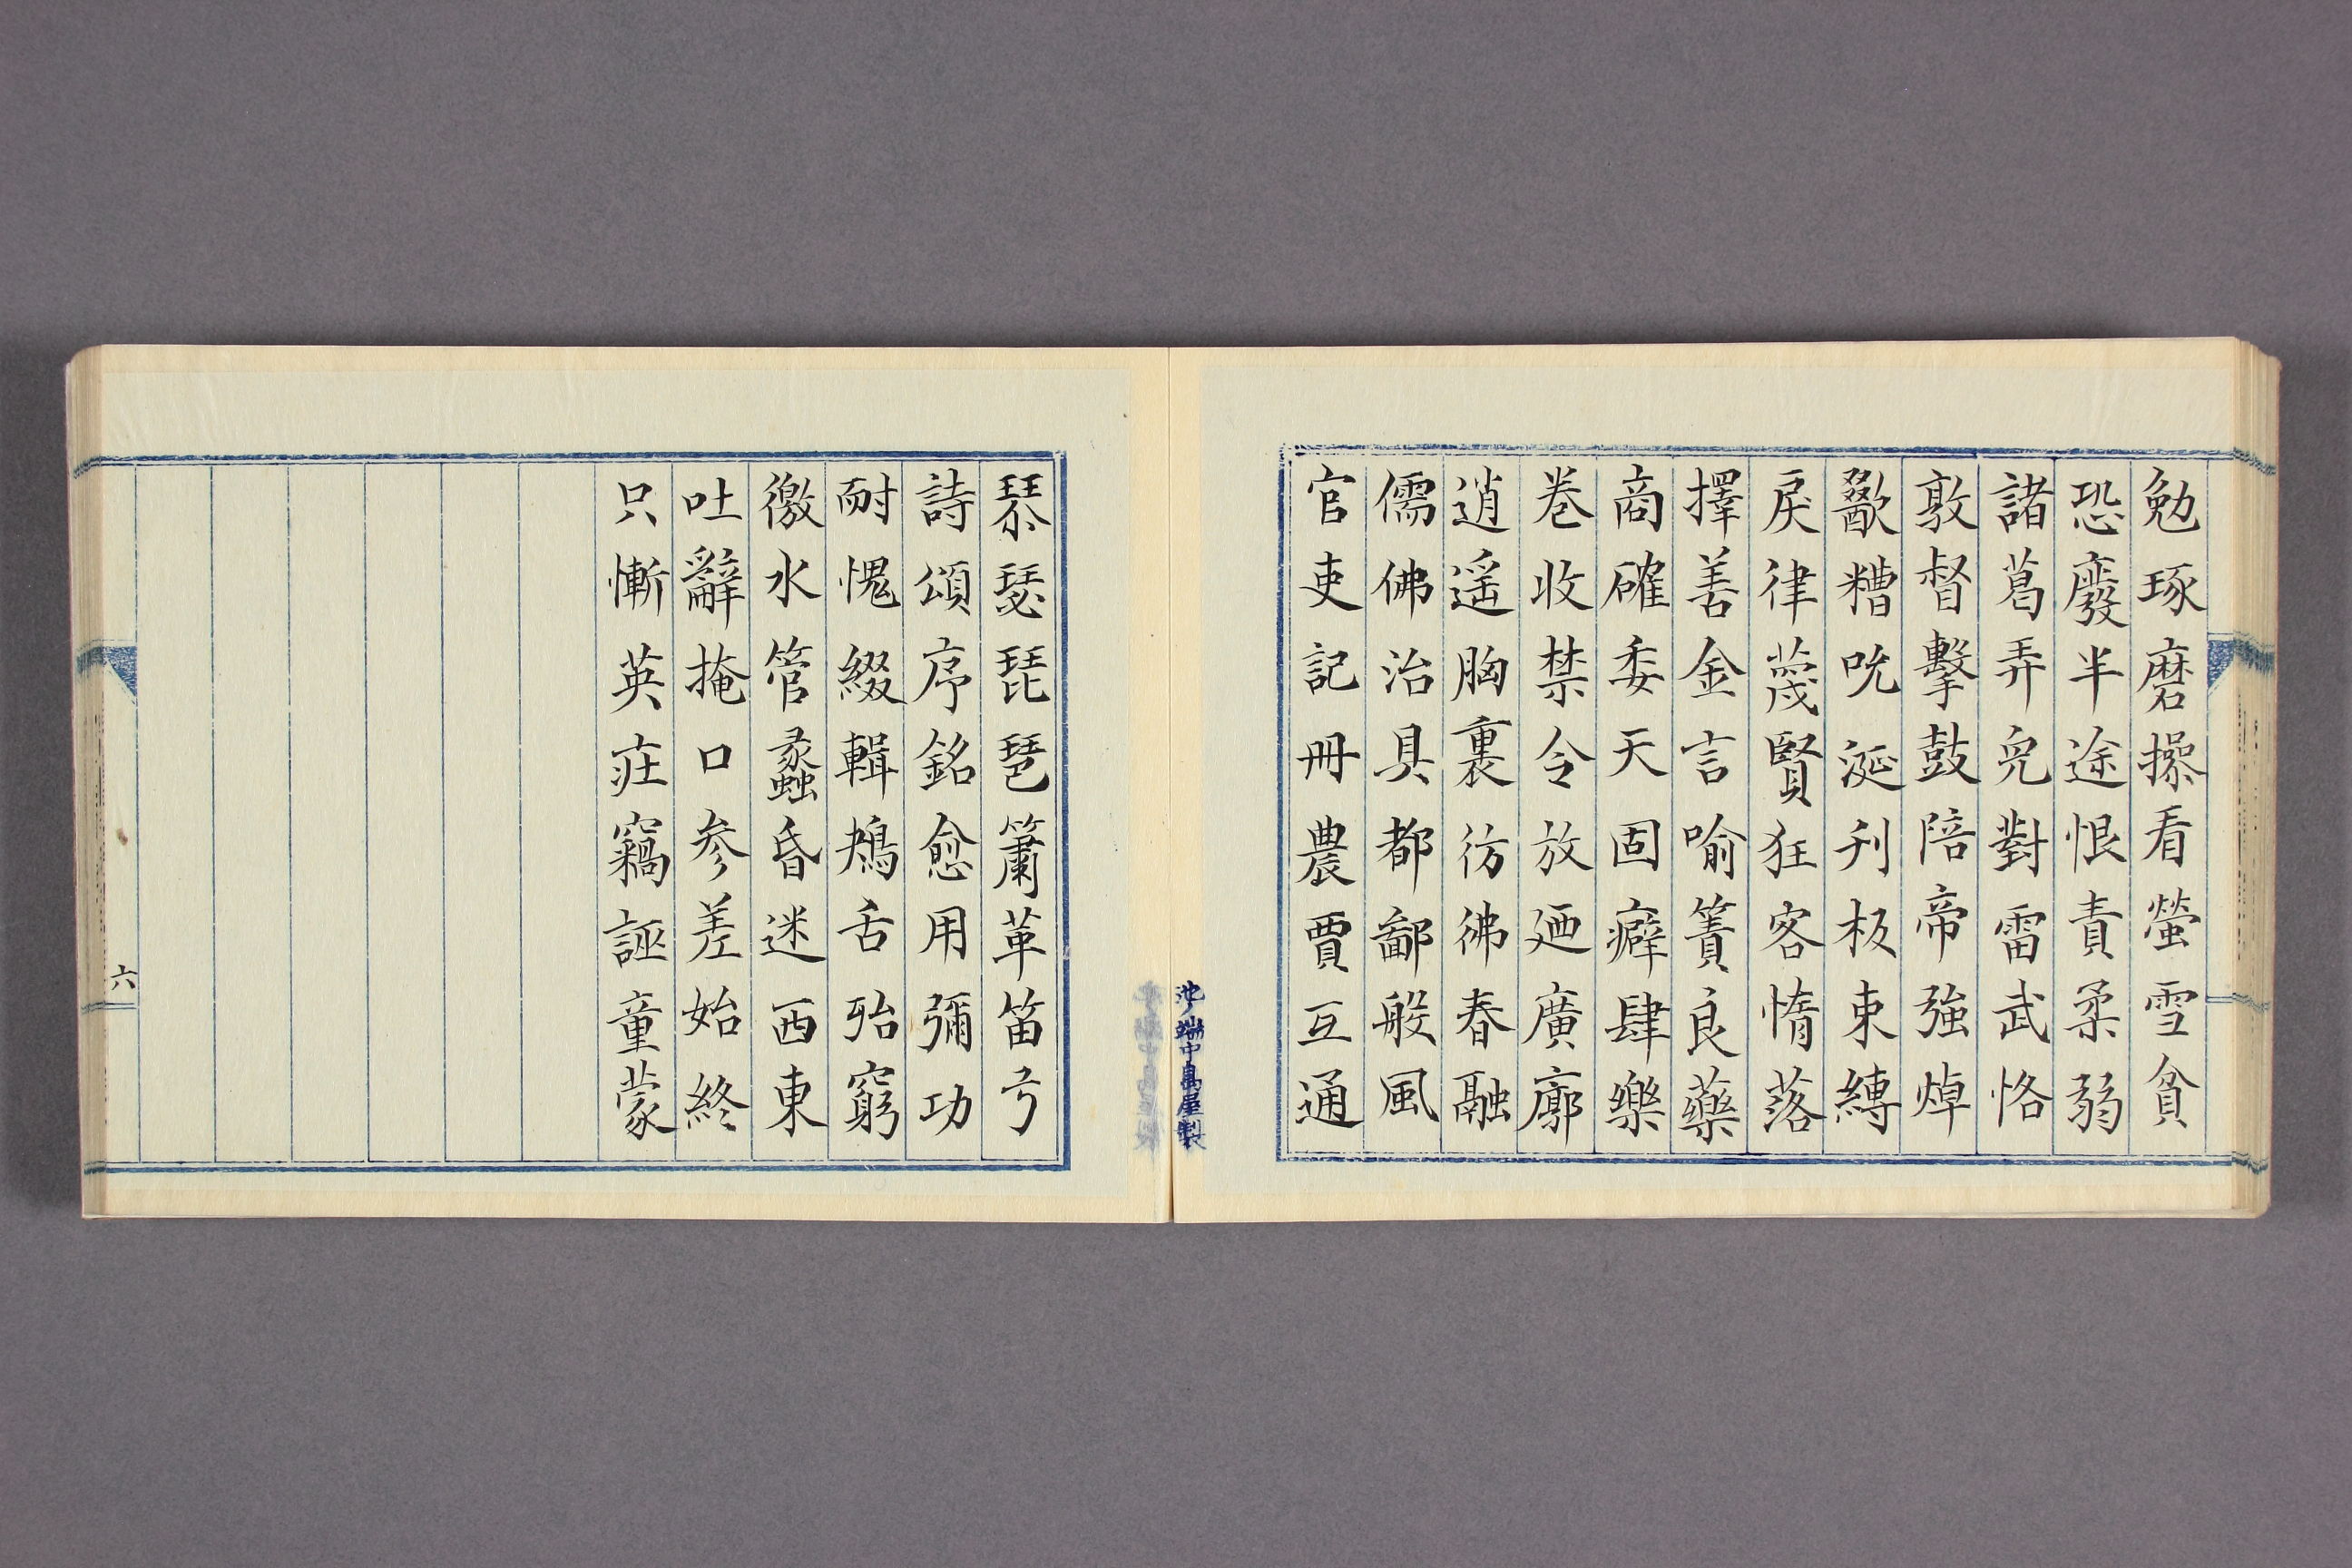 勉琢磨操看螢雪貧
恐廢半途恨責柔弱
諸葛弄兒對雷武恪
敦督擊鼓陪帝強焯
歠糟吮涎刋板束縛
戾律蔑賢狂客惰落
擇善金言喻簀良藥
商確委天固癖肆樂
卷收禁令放廼廣廓
逍遥胸裏彷彿春融
儒佛治具都鄙般風
官吏記冊農賈互通
池ノ端中島屋製
琴瑟琵琶簫革笛亏
詩頌序銘愈用彌功
耐愧綴輯鴂舌殆窮
徼水管蠡昏迷西東
吐辭掩口参差始終
只慚英疘竊誣童蒙
六